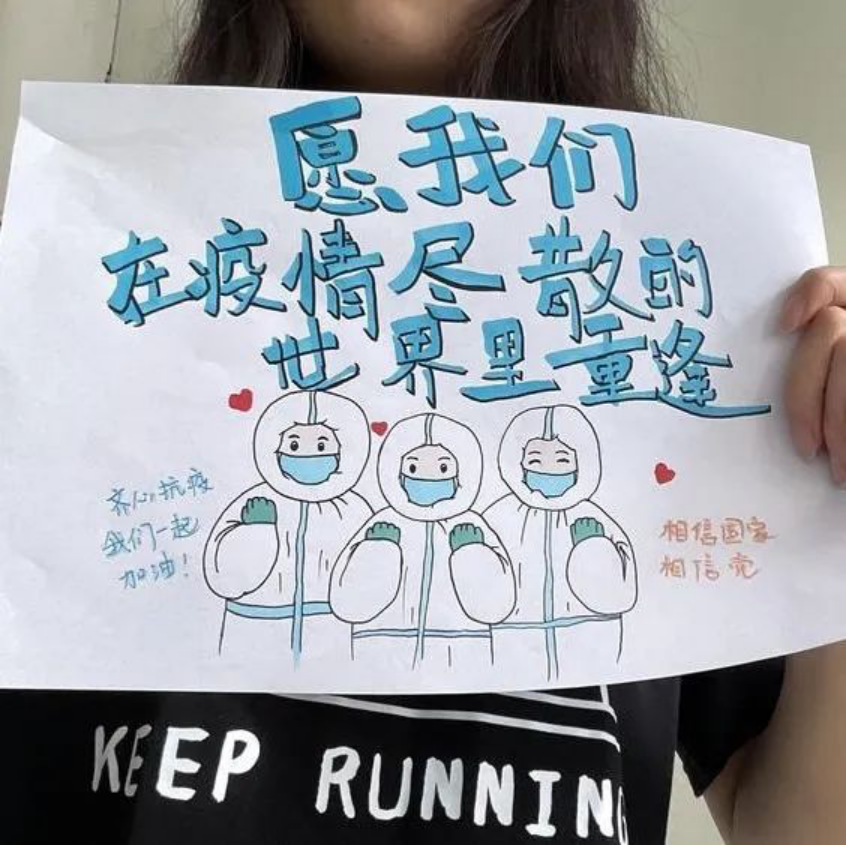 愿我们
在疫情尽散的
世界里重逢
齐心抗疫
我们一起
加油！
相信国家
相信党
KEEP RUNNING